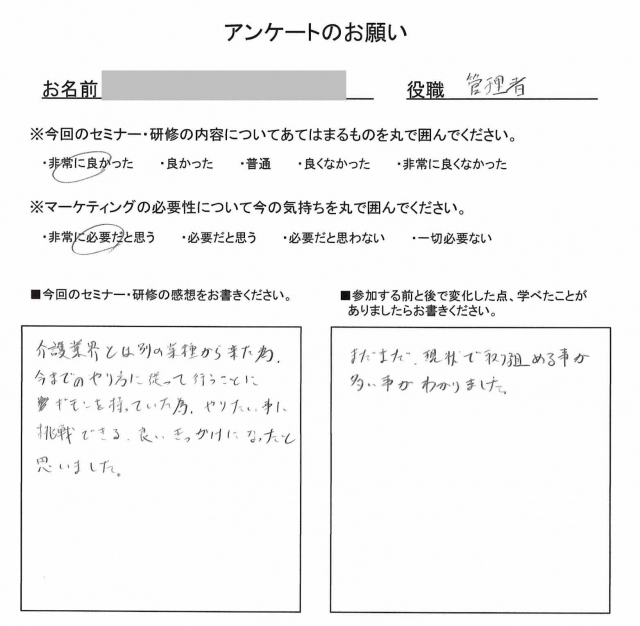 アンケートのお願い
お名前
役職 管理者
※今回のセミナー・研修の内容についてあてはまるものを丸で囲んでください。
・非常に良かった ・良かった ・普通 ・良くなかった ・非常に良くなかった
※マーケティングの必要性について今の気持ちを丸で囲んでください。
・非常に必要だと思う ・必要だと思う ・必要だと思わない ・一切必要ない
■今回のセミナー・研修の感想をお書きください。
介護業界とは別の業種から来た為、
今までのやり方に従って行うことに
ギモンを持っていた為、やりたい事に
挑戦できる、良いきっかけになったと
思いました。
■参加する前と後で変化した点、学べたことが
ありましたらお書きください。
まだまだ、現状で取り組める事が
多い事がわかりました。